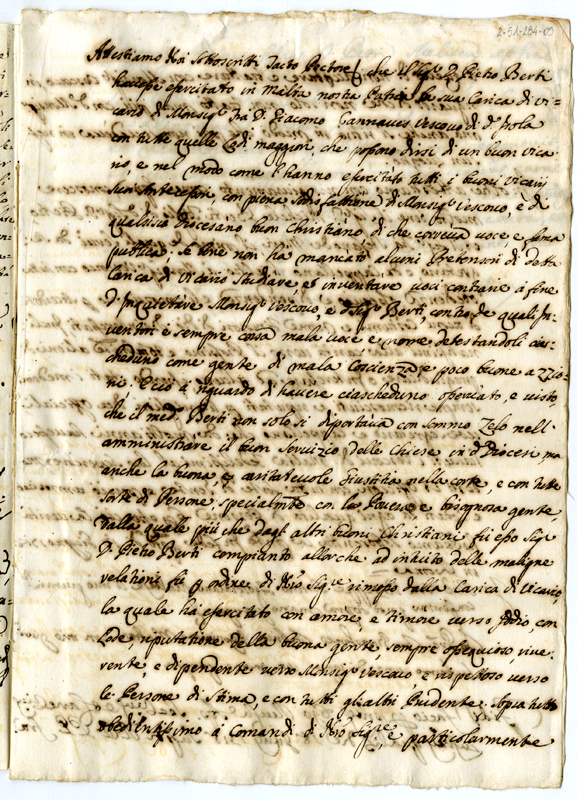 2-51-284-09
Attestiamo Noi sottoscritti Tacto Pectore che il Sigr D. Pietro Berti
havesse esercitato in Malta nostra Patria la sua Carica di Vi=
cario di Monsigr Frà D. Giacomo Cannaves Vescovo di da Isola
con tutte quelle Lodi maggiori, che possono dirsi di un buon Vica=
rio, e nel modo come l'hanno esercitato tutti i buoni Vicarij
suoi Antecessori, con piena sodisfattione di Monsigr Vescovo, e di
qualsivia Diocesano buon Christiano, di che correva voce e fama
publica; Se bene non ha mancato alcuni Pretensori di detta
Carica di Vicario Studiare, et inventare voci contrarie à fine
d'Inquietare Monsigr Vescovo, e do Sigr Berti, contro de quali In=
ventori è sempre corsa mala voce e nome detestandoli cias=
cheduno come gente di mala Coscienza e poco buone azzio=
ni; Ecciò à riguardo di havere ciascheduno osservato, e visto,
che il medo Berti non solo si diportava con sommo Zelo nell'
amministrare il buon servizio delle Chiese in da Diocesi, ma
anche la buona, e caritatevole Giustitia nella corte, e con tutte
sorte di Persone, specialmte con la Povera, e bisognosa gente,
dalla quale più che dagl'altri buoni Christiani fù esso Sigr
D. Pietro Berti compianto allorche ad inditto delle maligne
relationi fù p ordine di Nro Sigre rimosso dalla Carica di Vicario,
la quale ha esercitato con amore, e timore verso Iddio, con
Lode, riputatione della buona gente sempre ossequioso, rive=
rente, e dipendente verso Monsigr Vescovo e rispettoso verso
le Persone di Stima, e con tutti gl'altri Prudente. Sopra tutto
obedientissimo à Comandi di Nro Sigre, e particolarmente